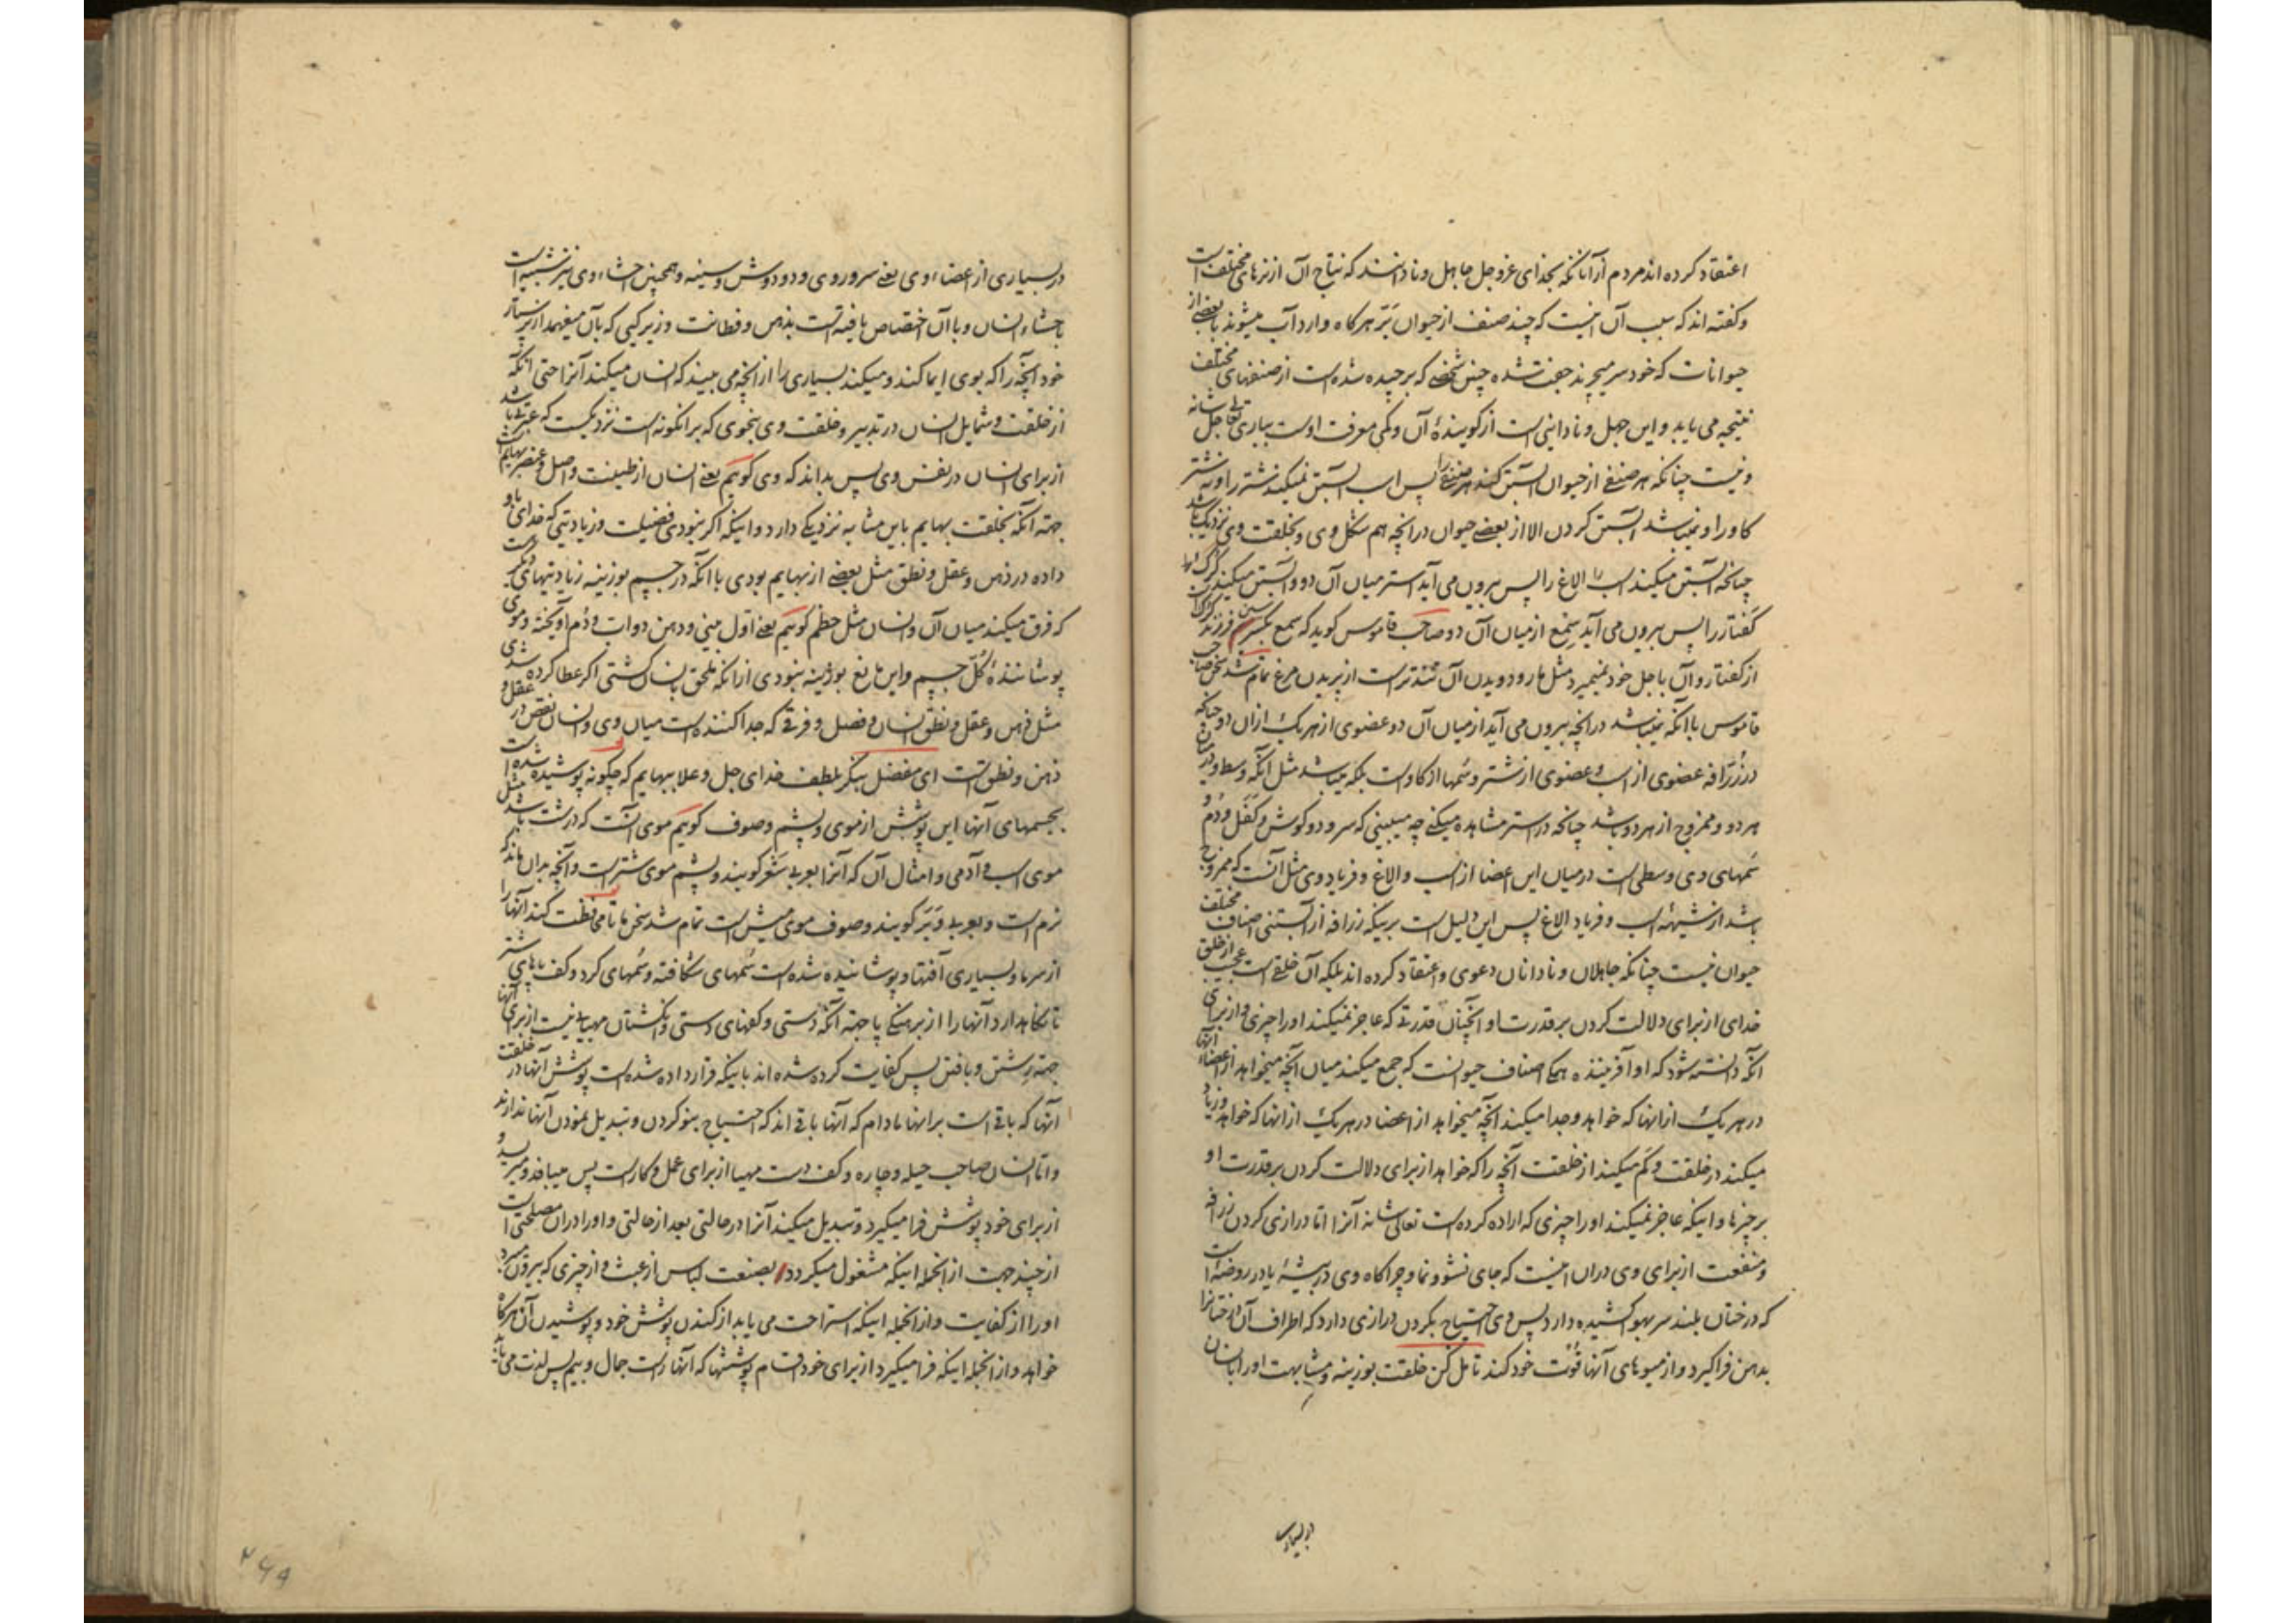 اعتقاد کرده اند مردم از آنانکه بخدای عزوجل جاهل و نادانند که نتاج آن از نرهای مختلف است
و گفته اند که سبب آن اینست که چند صنف از حیوان بَرّ هرکاه وارد آب میشوند با بعضی از
حیوانات که خود سر میچرند جفت شده چنین شخصی که برچیده شده است از صنفهای مختلف
نتیجه می یابد و این جهل و نادانی است از کویندهٔ آن و کمی معرفت اوست بباری تعالی جل شانه
و نیست چنانکه هر صنفی از حیوان آبستن کند هر صنفی را پس اسب آبستن نمیکند شتر را و نه شتر
کاو را و نمیباشد آبستن کردن الا از بعضی حیوان در انچه هم شکل وی و بخلقت وی نزدیک باشد
چنانچه آبستن میکند اسب الاغ را پس بیرون می آید استر میان آن دو و آبستن میکند کرک
کفتار را پس بیرون می آید سمع از میان آن دو صاحب قاموس کوید که سمع بکسر سین فرزند کرک است
از کفتار و آن باجل خود نمیمیرد مثل مار و دویدن آن تندتر است از پریدن مرغ تمام شد سخن صاحب
قاموس با آنکه نمیباشد در انچه بیرون می آید از میان آن دو عضوی از هر یک از آن دو چنانکه
در زرافه عضوی از اسب و عضوی از شتر و سمها از کاو است بلکه میباشد مثل آنکه وسط و در میان
هر دو و ممزوج از هر دو باشد چنانچه در استر مشاهده میکنی چه میبینی که سر و دو کوش و کَفَل و دُم و
سُمهای وی وسطی است در میان این اعضا از اسب و الاغ و فریاد وی مثل آنست که ممزوج
باشد از شیههٔ اسب و فریاد الاغ پس این دلیل است بر اینکه زرافه از آبستنی اصناف مختلف
حیوان نیست چنانکه جاهلان و نادانان دعوی و اعتقاد کرده اند بلکه آن خلقی است عجیب از خلق
خدای از برای دلالت کردن بر قدرت او آنچنان قدرتی که عاجز نمیکند او را چیزی و از برای
آنکه دانسته شود که او آفریننده همه اصناف حیوانست که جمع میکند میان آنچه میخواهد از اعضاء آنها
در هر یک از انها که خواهد و جدا میکند آنچه میخواهد از اعضا در هر یک از انها که خواهد و زیاد
میکند در خلقت و کم میکند از خلقت آنچه را که خواهد از برای دلالت کردن بر قدرت او
بر چیزها و اینکه عاجز نمیکند او را چیزی که اراده کرده است تعالی شانه آنرا اما درازی کردن زرافه
و منفعت از برای وی در آن اینست که جای نشو و نما و چراکاه وی در بیشهٔ یا در روضهٔ است
که درختان بلند سر بهوا کشیده دارد پس وی احتیاج بکردن درازی دارد که اطراف آن درختانرا
بدهن فراکیرد و از میوهای آنها قُوت خود کند تامل کن خلقت بوزینه و مشابهت او را بانسان
در بسیاری از اعضاء وی یعنی سر و روی و دو دوش و سینه و همچنین احشاء وی نیز شبیه است
باحشاء انسان و با آن اختصاص یافته است بذهن و فطانت و زیرکی که بآن میفهمد از پرستار
خود آنچه را که بوی ایما کند و میکند بسیاری را از آنچه می بیند که انسان میکند آنرا حتی آنکه
از خلقت و شمایل انسان در تدبیر و خلقت وی بنحوی که بر انکونه است نزدیکست که عبرتی باشد
از برای انسان در نفس وی پس بداند که وی کویم یعنی انسان از طینت و اصل و عنصر بهایم است
جهة آنکه بخلقت بهایم باین مشابه نزدیکی دارد و اینکه اگر نبودی فضیلت و زیادتیی که خدای باو
داده در ذهن و عقل و نطق مثل بعضی از بهایم بودی با آنکه در جسم بوزینه زیادتیهای دیگر است
که فرق میکند میان آن و انسان مثل خطم کویم یعنی اول بینی و دهن دواب و دُم آویخته و موی
پوشانندهٔ کل جسم و این مانع بوزینه نبودی از انکه ملحق بانسان کشتی اگر عطا کرده شدی
مثل ذهن و عقل و نطق انسان و فصل و فرقی که جدا کننده است میان وی و انسان نقص در عقل و
ذهن و نطق است ای مفضل بنگر بلطف خدای جل و علا ببهایم که چکونه پوشیده شده است
بجسمهای آنها این پوشش از موی و پشم و صوف کویم موی آنست که درشت باشد مثل
موی اسب و آدمی و امثال آن که آنرا بعربی شَعْر کویند و پشم موی شتر است و آنچه بدان ماند که
نرم است و بعربی وَبَر کویند و صوف موی میش است تمام شد سخن ما تا محافظت کند آنها را
از سرما و بسیاری آفتها و پوشانیده شده است سُمهای شکافته و سُمهای کرد و کف پاهای شتر
تا نکاهدارد آنها را از برهنکی پا جهة آنکه دستی و کفهای دستی و انکشتان مهیایی نیست از برای آنها
جهة رشتن و بافتن پس کفایت کرده شده اند باینکه قرار داده شده است پوشش آنها در خلقت
آنها که باقی است بر انها مادام که آنها باقی اند که احتیاج بنو کردن و تبدیل نمودن آنها ندارند
و اما انسان صاحب حیله و چاره و کف دست مهیا از برای عمل و کار است پس میبافد و میریسد و
از برای خود پوشش فرا میکیرد و تبدیل میکند آنرا در حالتی بعد از حالتی و او را در آن مصلحتی است
از چند جهت از انجمله اینکه مشغول میکردد بصنعت لباس از عبث و از چیزی که بیرون برد
او را از کفایت و از انجمله اینکه استراحت می یابد از کندن پوشش خود و پوشیدن آن هرکاه
خواهد و از انجمله اینکه فرا میکیرد از برای خود اقسام پوششها که آنها راست جمال و بیم پس لذت می یابد
در بسیاری
۲۶۹